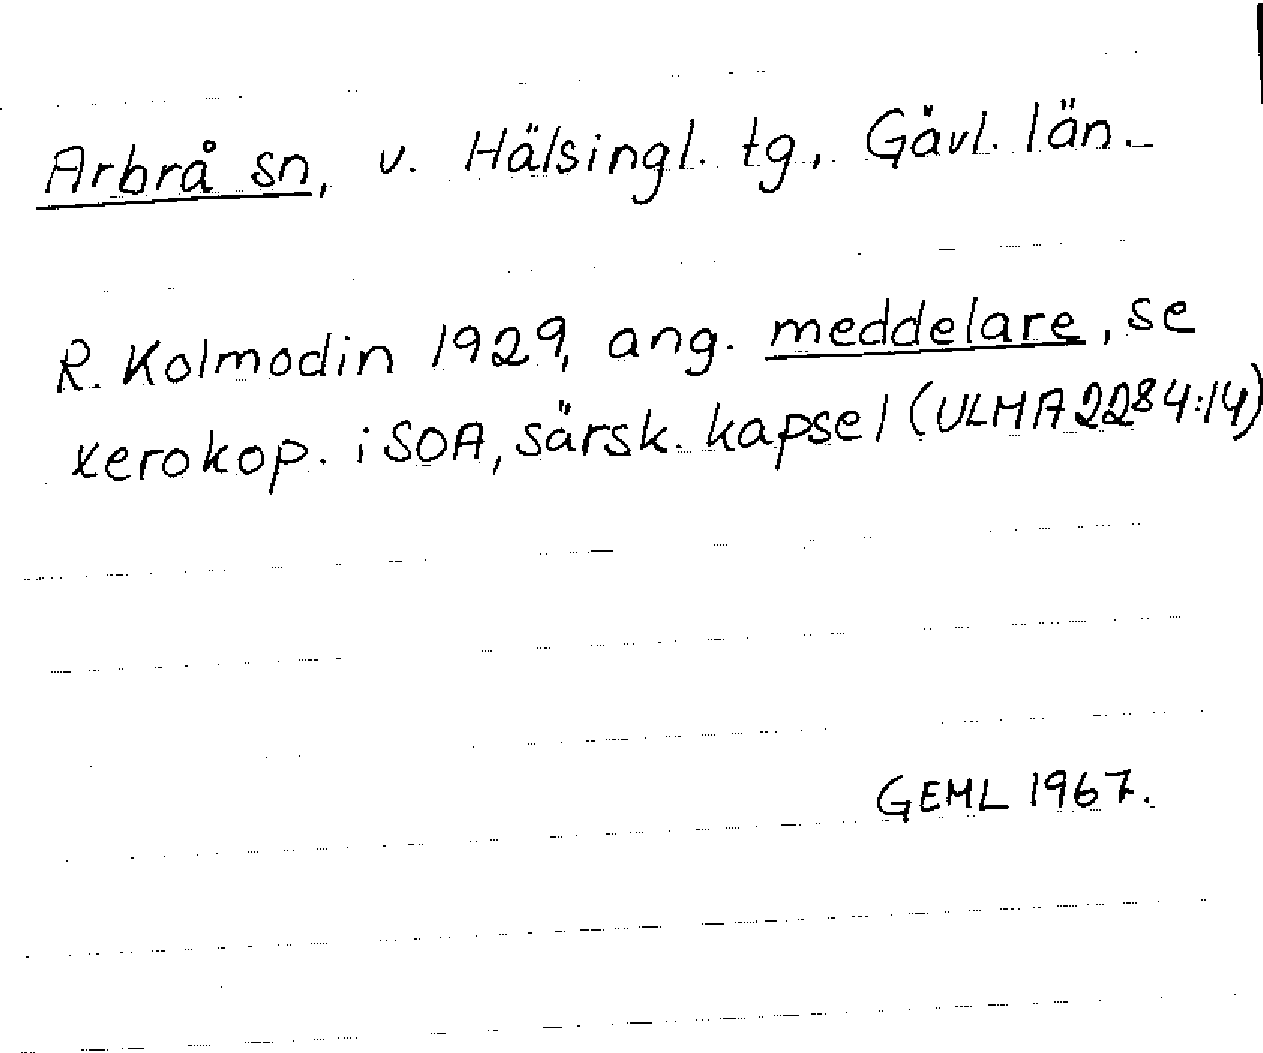 Arbrå sn, v. Hälsingl. tg, Gävl. län.
R. Kolmodin 1929, ang. meddelare, se
xerokop. i SOA, särsk. kapsel (ULMA 2284:14)
GEML 1967.